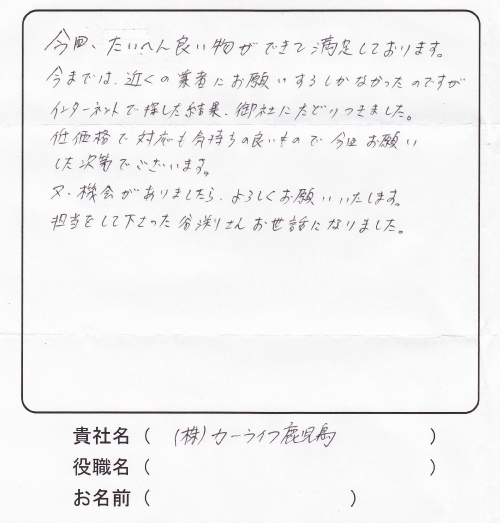 今回、たいへん良い物ができて満足しております。
今までは、近くの業者にお願いするしかなかったのですが
インターネットで探した結果、御社にたどりつきました。
低価格で対応も気持ちの良いもので今回お願い
した次第でございます。
又、機会がありましたら、よろしくお願いいたします。
担当をして下さった谷渕さんお世話になりました。
貴社名（ （株）カーライフ鹿児島 ）
役職名（ ）
お名前（ ）